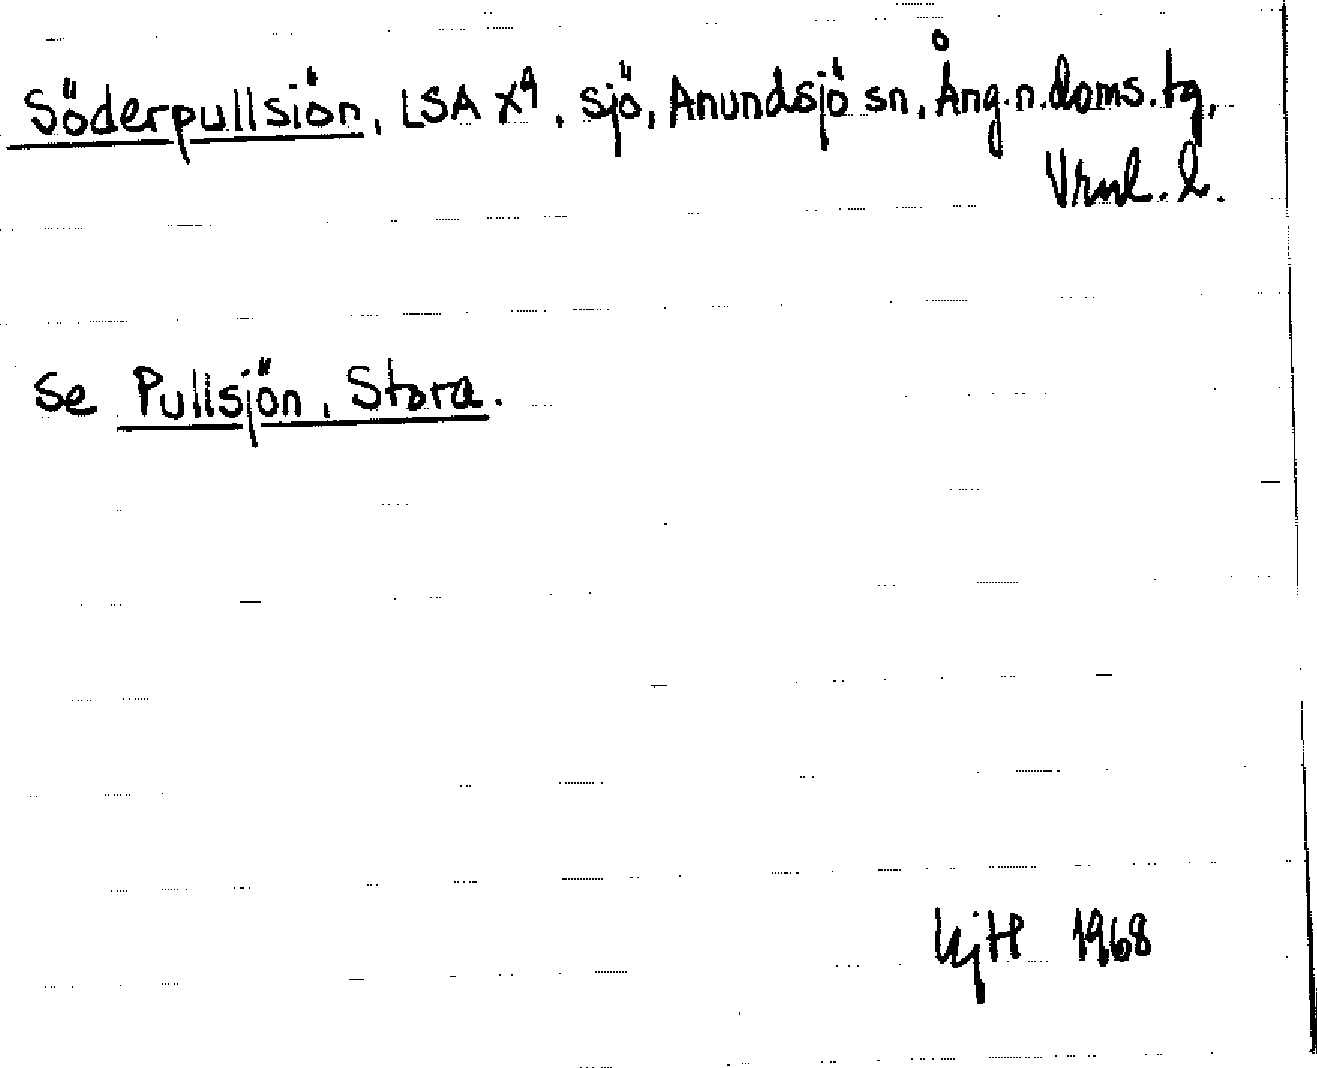 Söderpullsiön, LSA X9, sjö, Anundsjö sn, Ång.n.doms.tg,
Vrnl. l.
Se Pullsjön, Stora.
1968